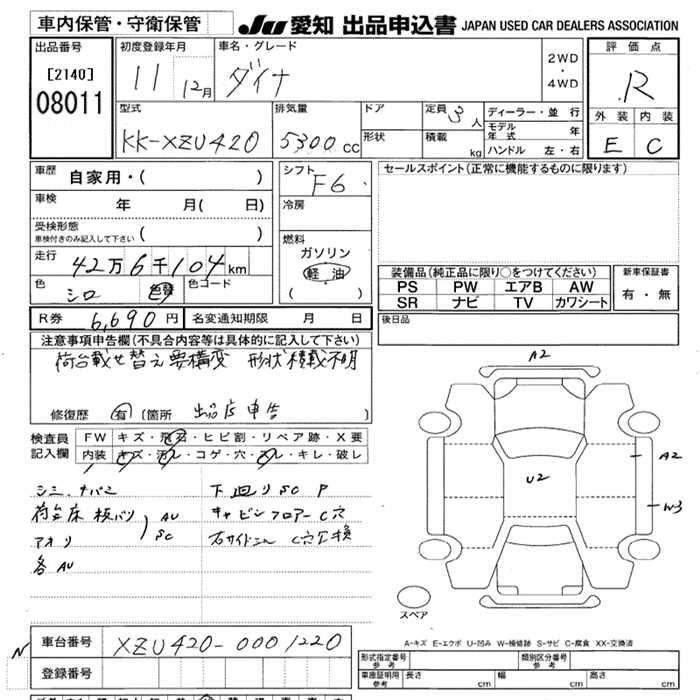 車内保管・守衛保管
JU 愛知 出品申込書 JAPAN USED CAR DEALERS ASSOCIATION
出品番号
[2140]
08011
初度登録年月
11 12月
車名・グレード
ダイナ
2WD
・
4WD
評価点
R
外装 内装
E C
型式
KK-XZU420
排気量
5300cc
ドア
形状
定員 3人
積載 kg
ディーラー・並行
モデル年式 年
ハンドル 左・右
車歴 自家用・( )
車検 年 月( 日)
受検形態
車検付きのみ記入して下さい ( )
走行 42万6千104km
色 シロ 色替 色コード
シフト F6
冷房
燃料
ガソリン
軽油
( )
セールスポイント(正常に機能するものに限ります)
装備品(純正品に限り○をつけてください)
PS PW エアB AW
SR ナビ TV カワシート
新車保証書
有・無
R券 6,690円 名変通知期限 月 日
後日品
注意事項申告欄(不具合内容等は具体的に記入して下さい)
荷台載せ替え要構変 形状積載不明
修復歴 有 〔箇所 出品店申告 〕
検査員
記入欄
FW キズ・飛石・ヒビ割・リペア跡・X要
内装 キズ・汚レ・コゲ・穴・スレ・キレ・破レ
下廻りSC P
荷台床板バリ AU
キャビンフロアーC穴
アオリ SC
各AU
A2
U2
A2
W3
スペア
A-キズ E-エクボ U-凹み W-補修跡 S-サビ C-腐食 XX-交換済
N
車台番号 XZU420-0001220
登録番号
形式指定番号
参考
類別区分番号
参考
車庫証明用
参考
長さ 幅 高さ
cm cm cm